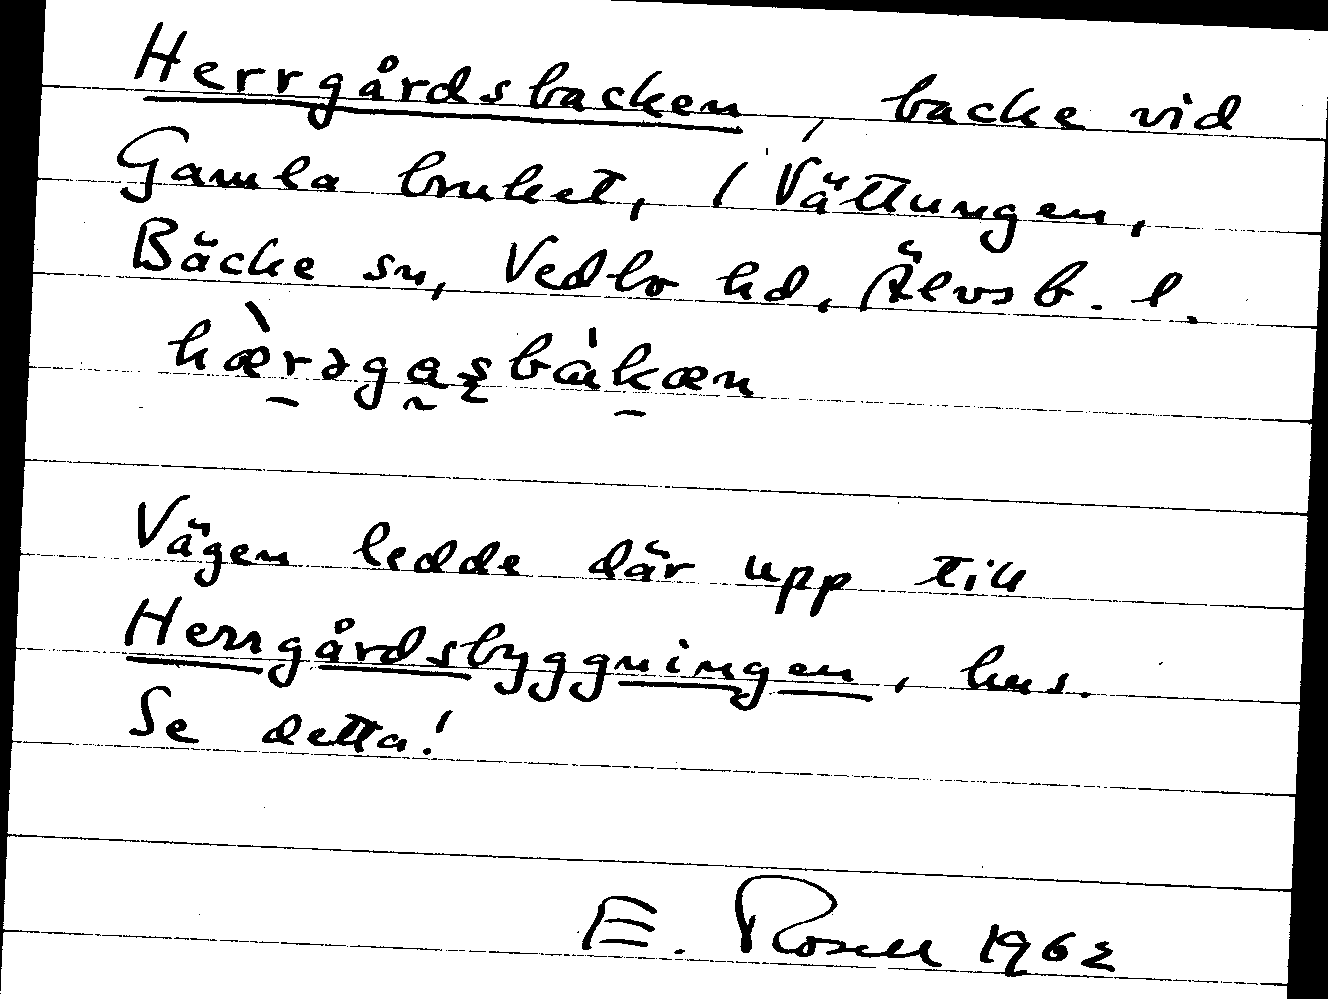 Herrgårdsbacken, backe vid
Gamla bruket, / Vättungen,
Bäcke sn, Vedbo hd, Älvsb. l.
hæ̀rəgaʂbàkæn
Vägen ledde där upp till
Herrgårdsbyggningen, hus.
Se detta!
E. Rosell 1962